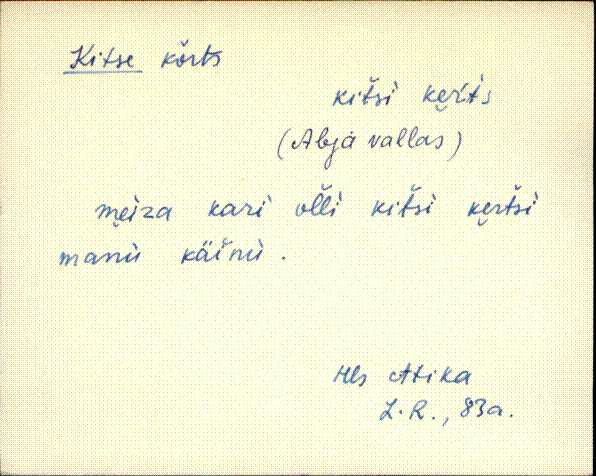 Kitse kõrts
kitši ke̮rts
(Abja vallas)
me̮iza kari olli kitši ke̮rtši
manu käinu.
Hls Atika
L.R., 83a.